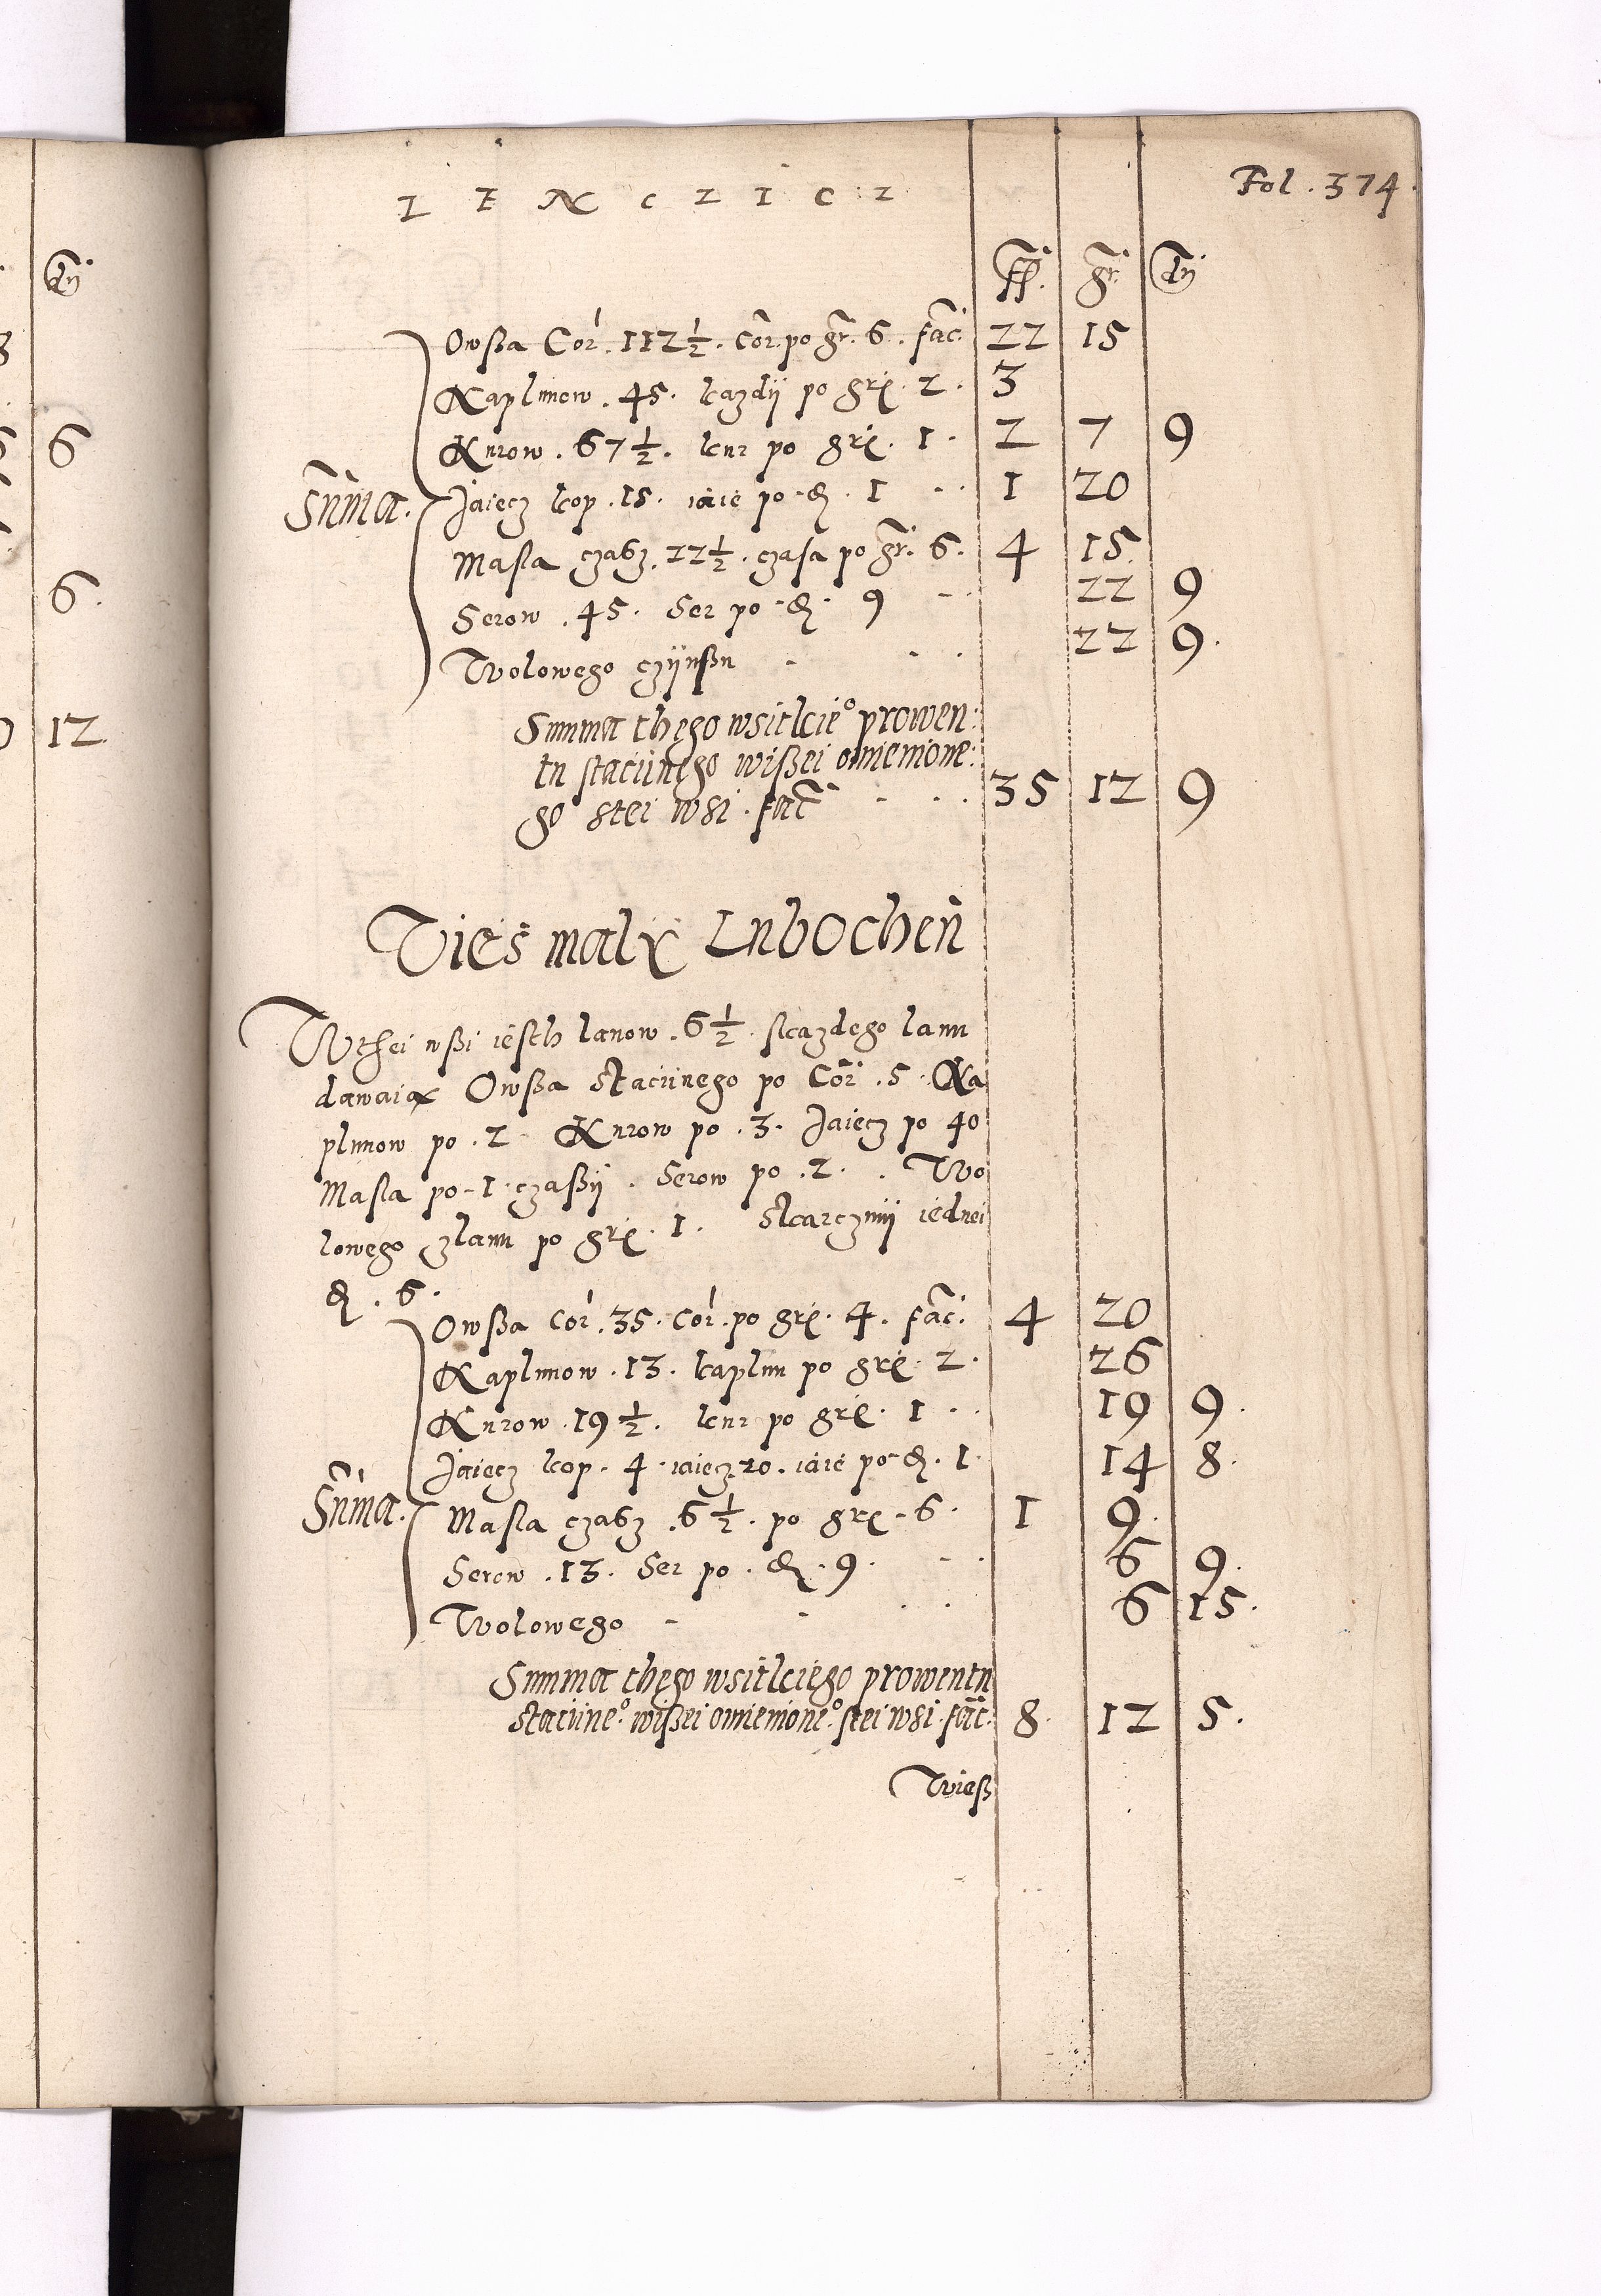 dÿ
6
6.
12
Fol. 374.
LENCZICZ
ff. gr. dÿ
Owßa Cor. 112½. Cor. po gr. 6. fac. 22 15
Kaplunow. 45. kazdÿ po grę. 2. 3
Kurow. 67½. kur po grę. 1. 2 7 9
Jaiecz kop. 15. iaie po d. 1 1 20
Masla czasz. 22½. czasa po gr. 6. 4 15.
Serow. 45. Ser po d. 9 22 9
Wolowego czÿnßu 22 9.
Summa.
Summa thego wsitkie° prowen:
tu staciinego wißei omienione:
go stei wsi. fac 35 12 9
Vies malx Lubochen
Wthei wßi iesth lanow. 6½. skazdego lanu
dawaiax Owßa staciinego po Cor. 5. Ka
plunow po. 2 Kurow po. 3. Jaiecz po 40
Masla po 1 czaßÿ. Serow po. 2. Wo
lowego zlanu po grę. 1. Skarczmÿ iednei
d. 6.
Owßa Cor. 35. Cor. po grę. 4. fac. 4 20
Kaplunow. 13. kaplun po grę. 2. 26
Kurow. 19½. kur po grę. 1 19 9.
Jaiecz kop. 4. iaiecz 20. iaie po d. 1. 14 8.
Summa.
Masla czasz. 6½. po grę. 6. 1 9.
Serow. 13. Ser po. d. 9. 6 9.
Wolowego 6 15.
Summa thego wsitkiego prowentu
staciine°. wißei omienione°. stei wsi. fac. 8. 12 5.
Wieß